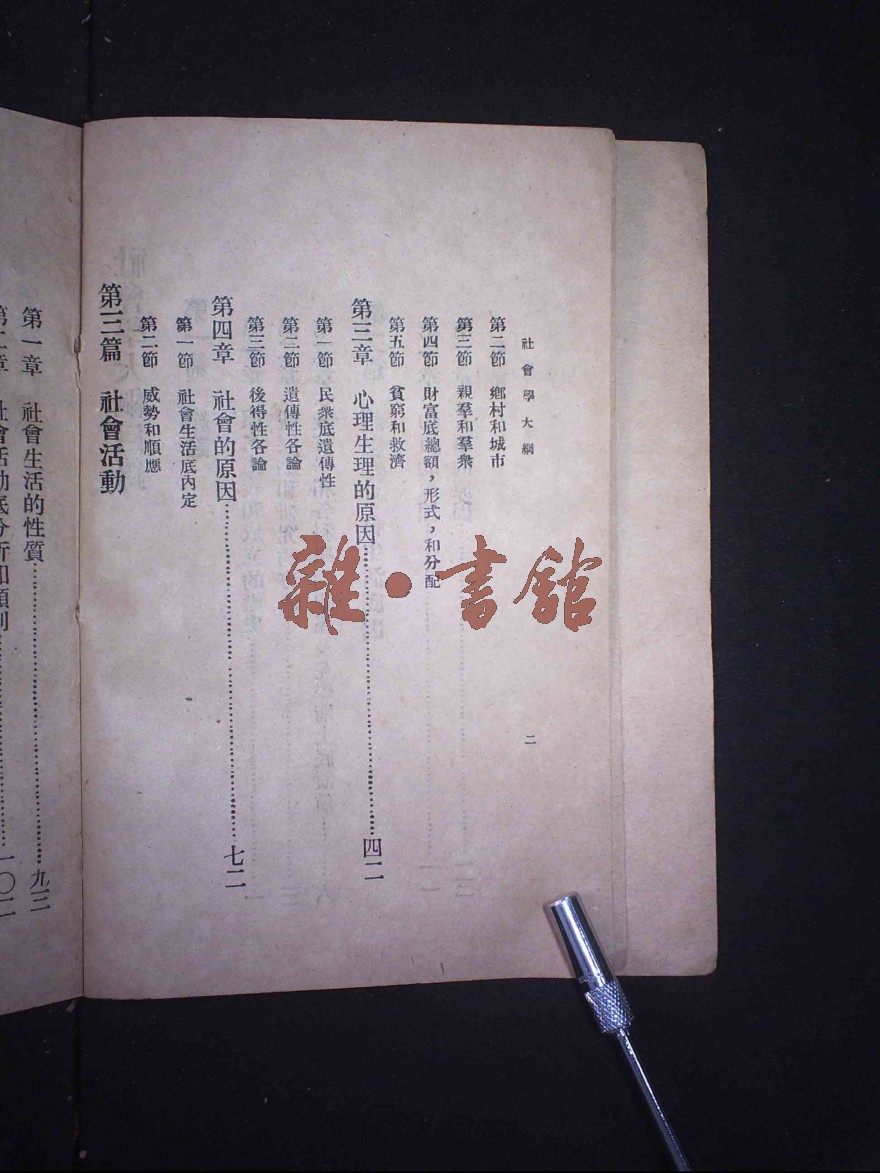 社會學大綱
二
第二節 鄉村和城市
第三節 親羣和羣衆
第四節 財富底總額，形式，和分配
第五節 貧窮和救濟
第三章 心理生理的原因…………四二
第一節 民衆底遺傳性
第二節 遺傳性各論
第三節 後得性各論
第四章 社會的原因…………七二
第一節 社會生活底內定
第二節 威勢和順應
第三篇 社會活動
第一章 社會生活的性質…………九三
第二章 社會活動底分析和類別…………一〇二
雜·書館